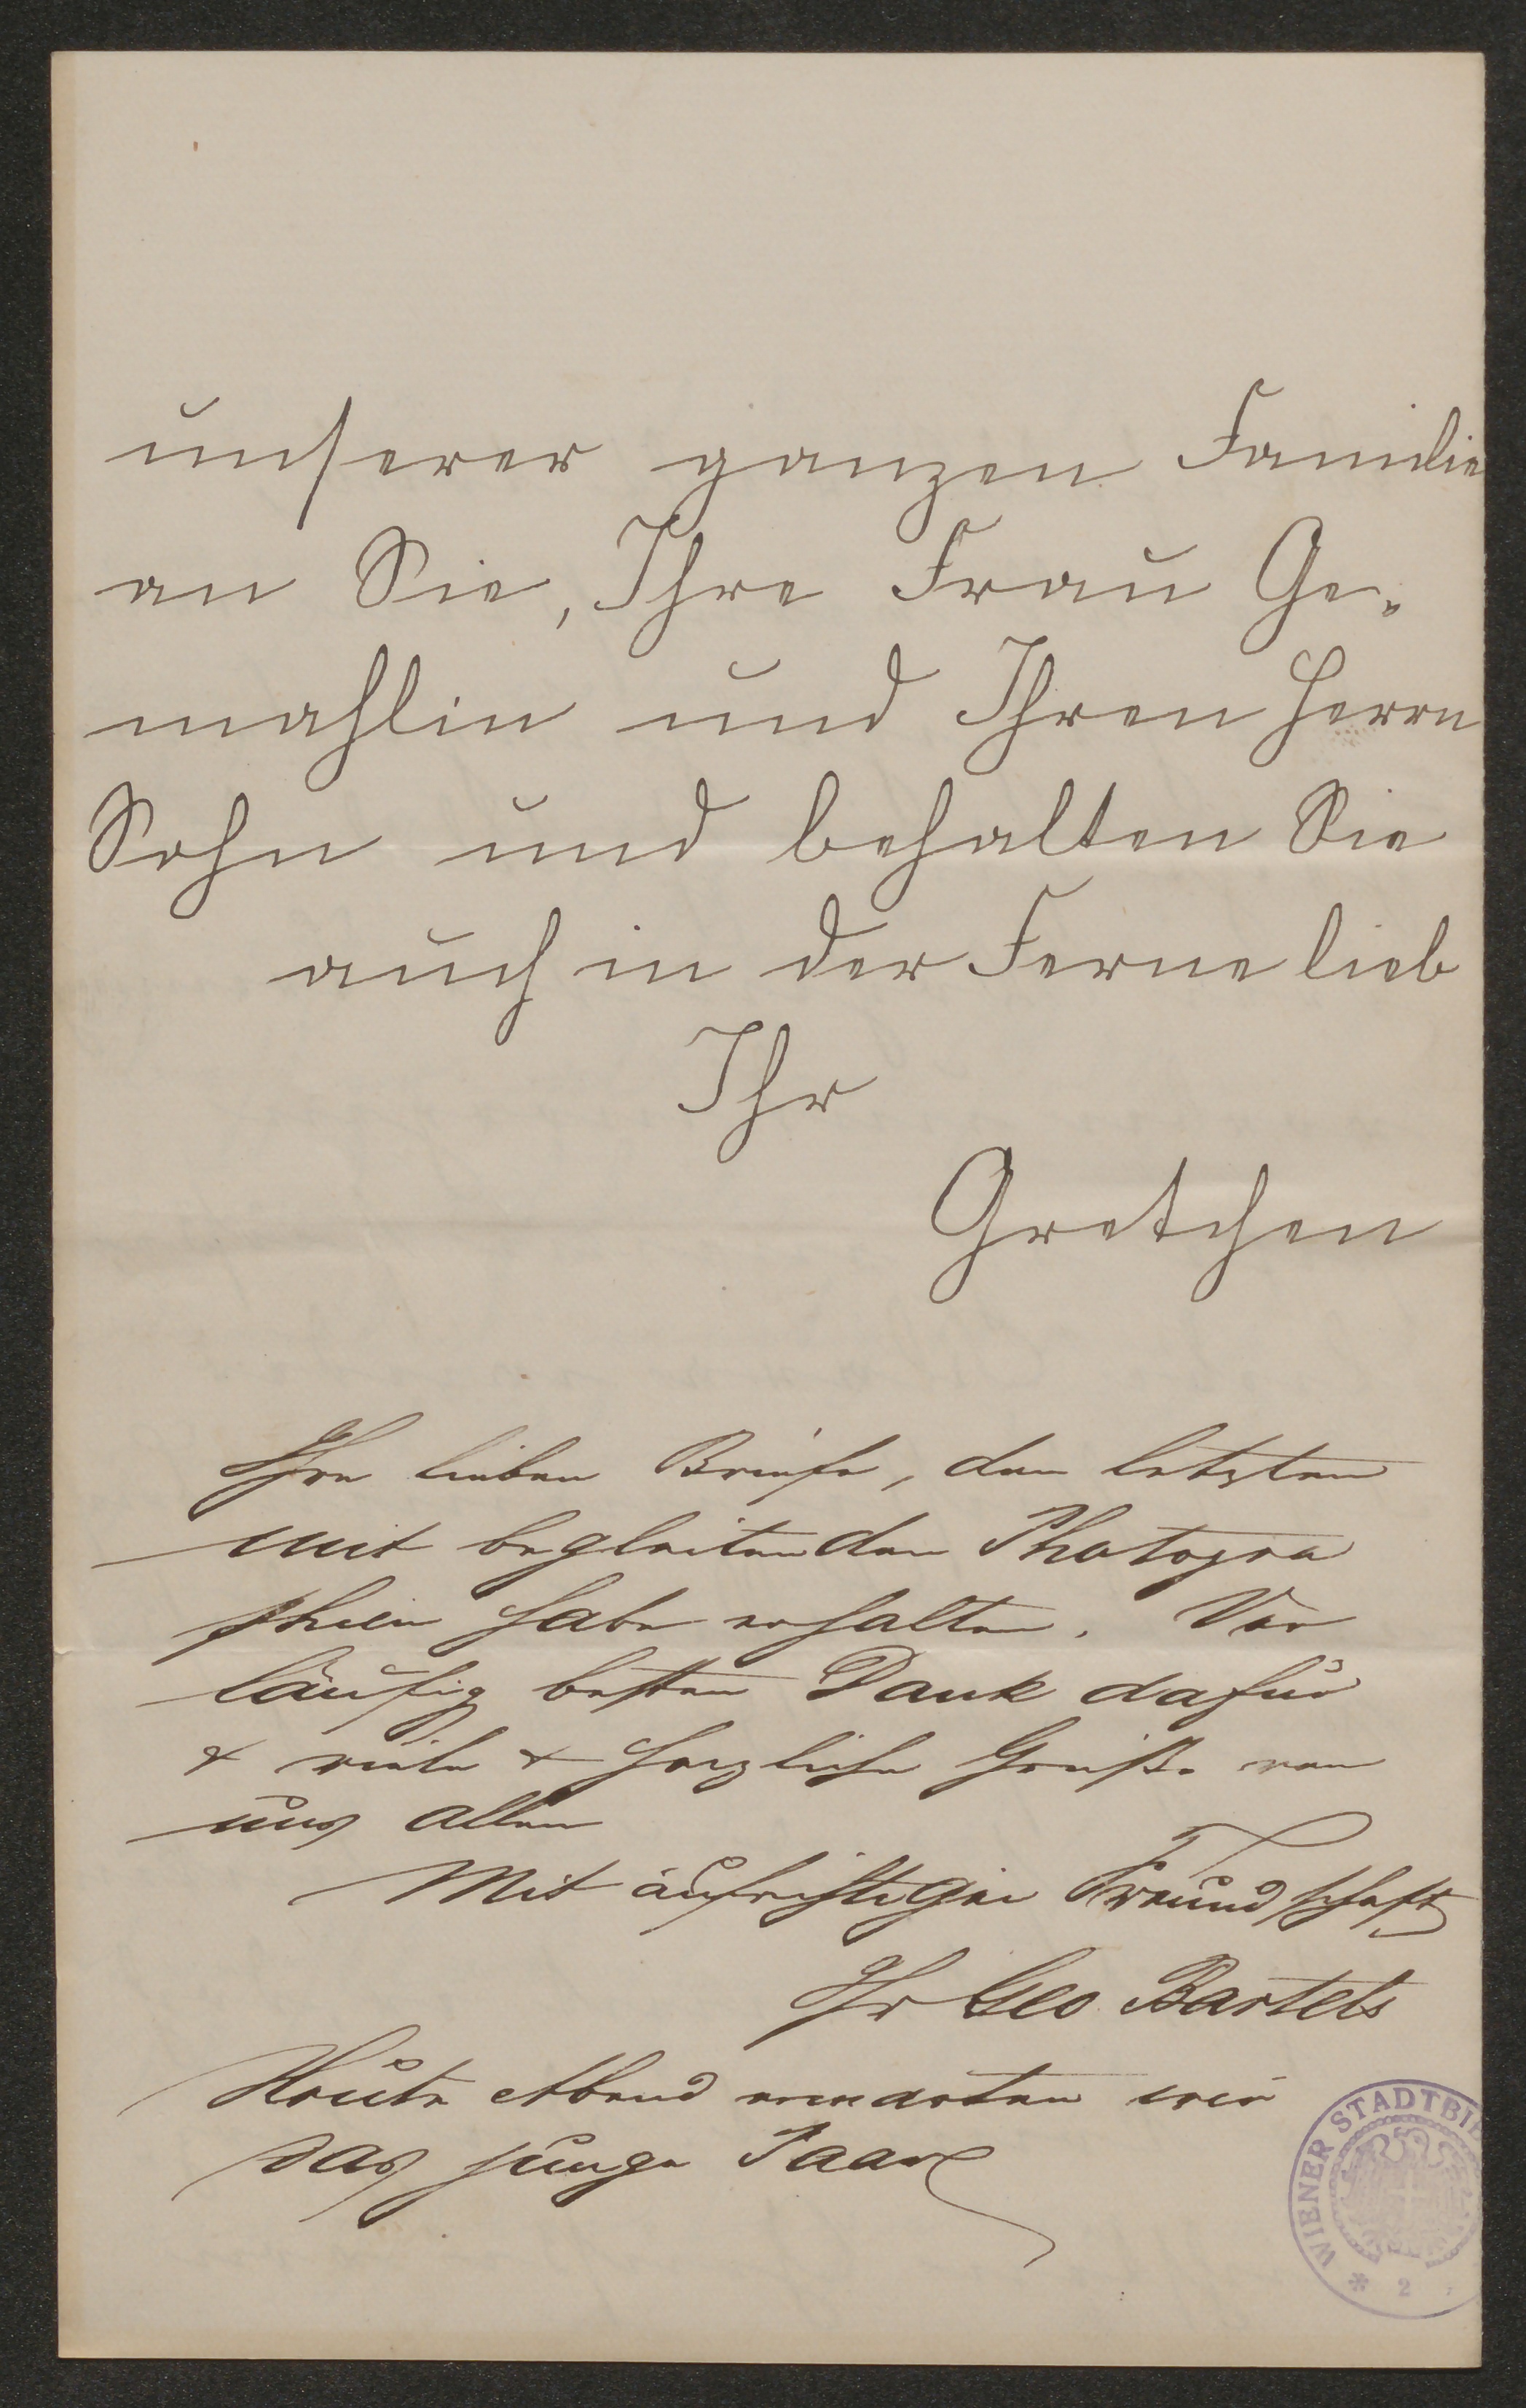 unserer ganzen Familie
an Sie, Ihre Frau Ge-
mahlin und Ihren Herrn
Sohn und behalten Sie
auch in der Ferne lieb
Ihr
Gretchen
Ihre lieben Briefe, den letzten
mit begleitenden Photogra
phien habe erhalten. Vor
läufig besten Dank dafür
& viele & herzliche Grüße von
uns allen
Mit aufrichtiger Freundschaft
Ihr Geo Bartels
Heute Abend erwarten wir
das junge Paar
WIENER STADTBI
* 2